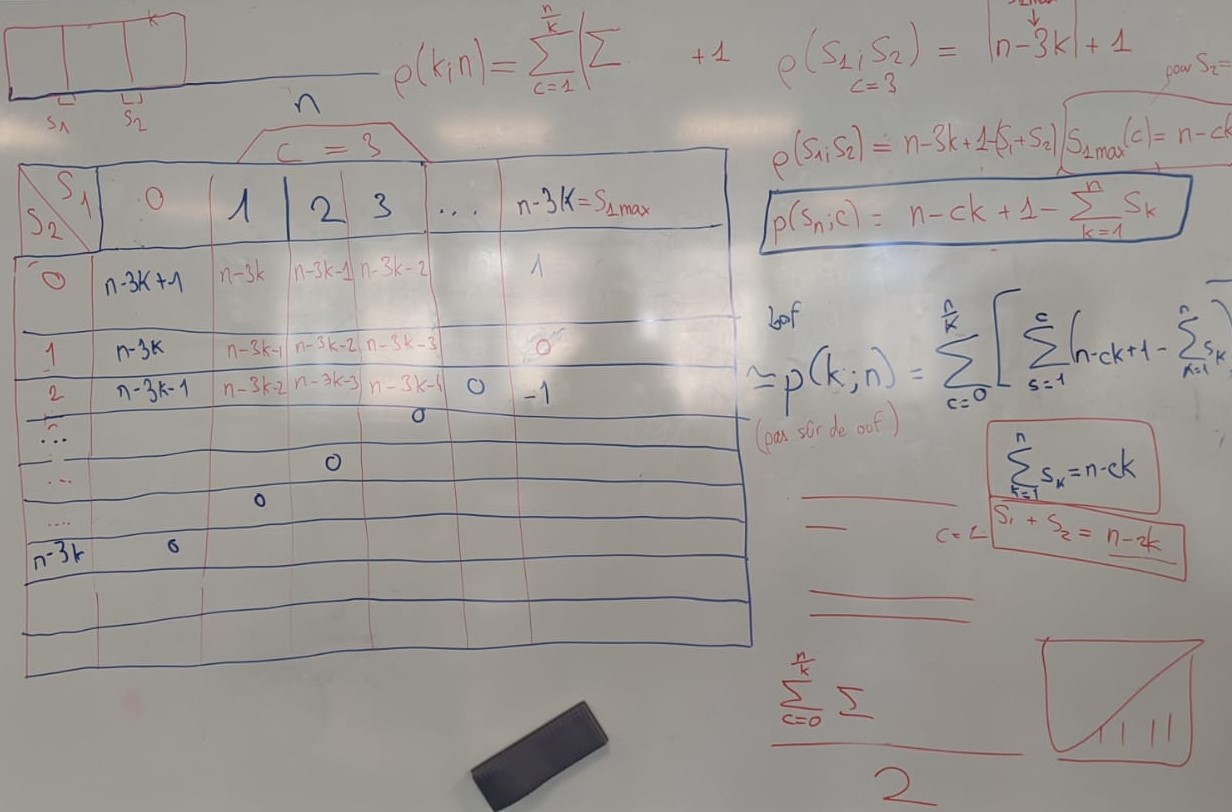 k
S₁ S₂
n
ρ(k;n) = ∑_{c=1}^{n/k} (∑ +1
ρ(S₁;S₂) = |n-3k| + 1
c=3
pour S₂=
ρ(S₁;S₂) = n-3k+1-(S₁+S₂)
S₁max(c) = n-ck
p(Sₙ;c) = n-ck+1-∑_{k=1}^{n} S_k
c = 3
S₁ 0 1 2 3 ... n-3k=S₁max
S₂
0 n-3k+1 n-3k n-3k-1 n-3k-2 1
1 n-3k n-3k-1 n-3k-2 n-3k-3 0
2 n-3k-1 n-3k-2 n-3k-3 n-3k-4 0 -1
... 0
... 0
.... 0
n-3k 0
bof
≃ p(k;n) = ∑_{c=0}^{n/k} [∑_{s=1}^{c} (n-ck+1-∑_{k=1}^{n} s_k)
(pas sûr de ouf)
∑_{k=1}^{n} s_k = n-ck
S₁ + S₂ = n-2k
∑_{c=0}^{n/k} ∑
2